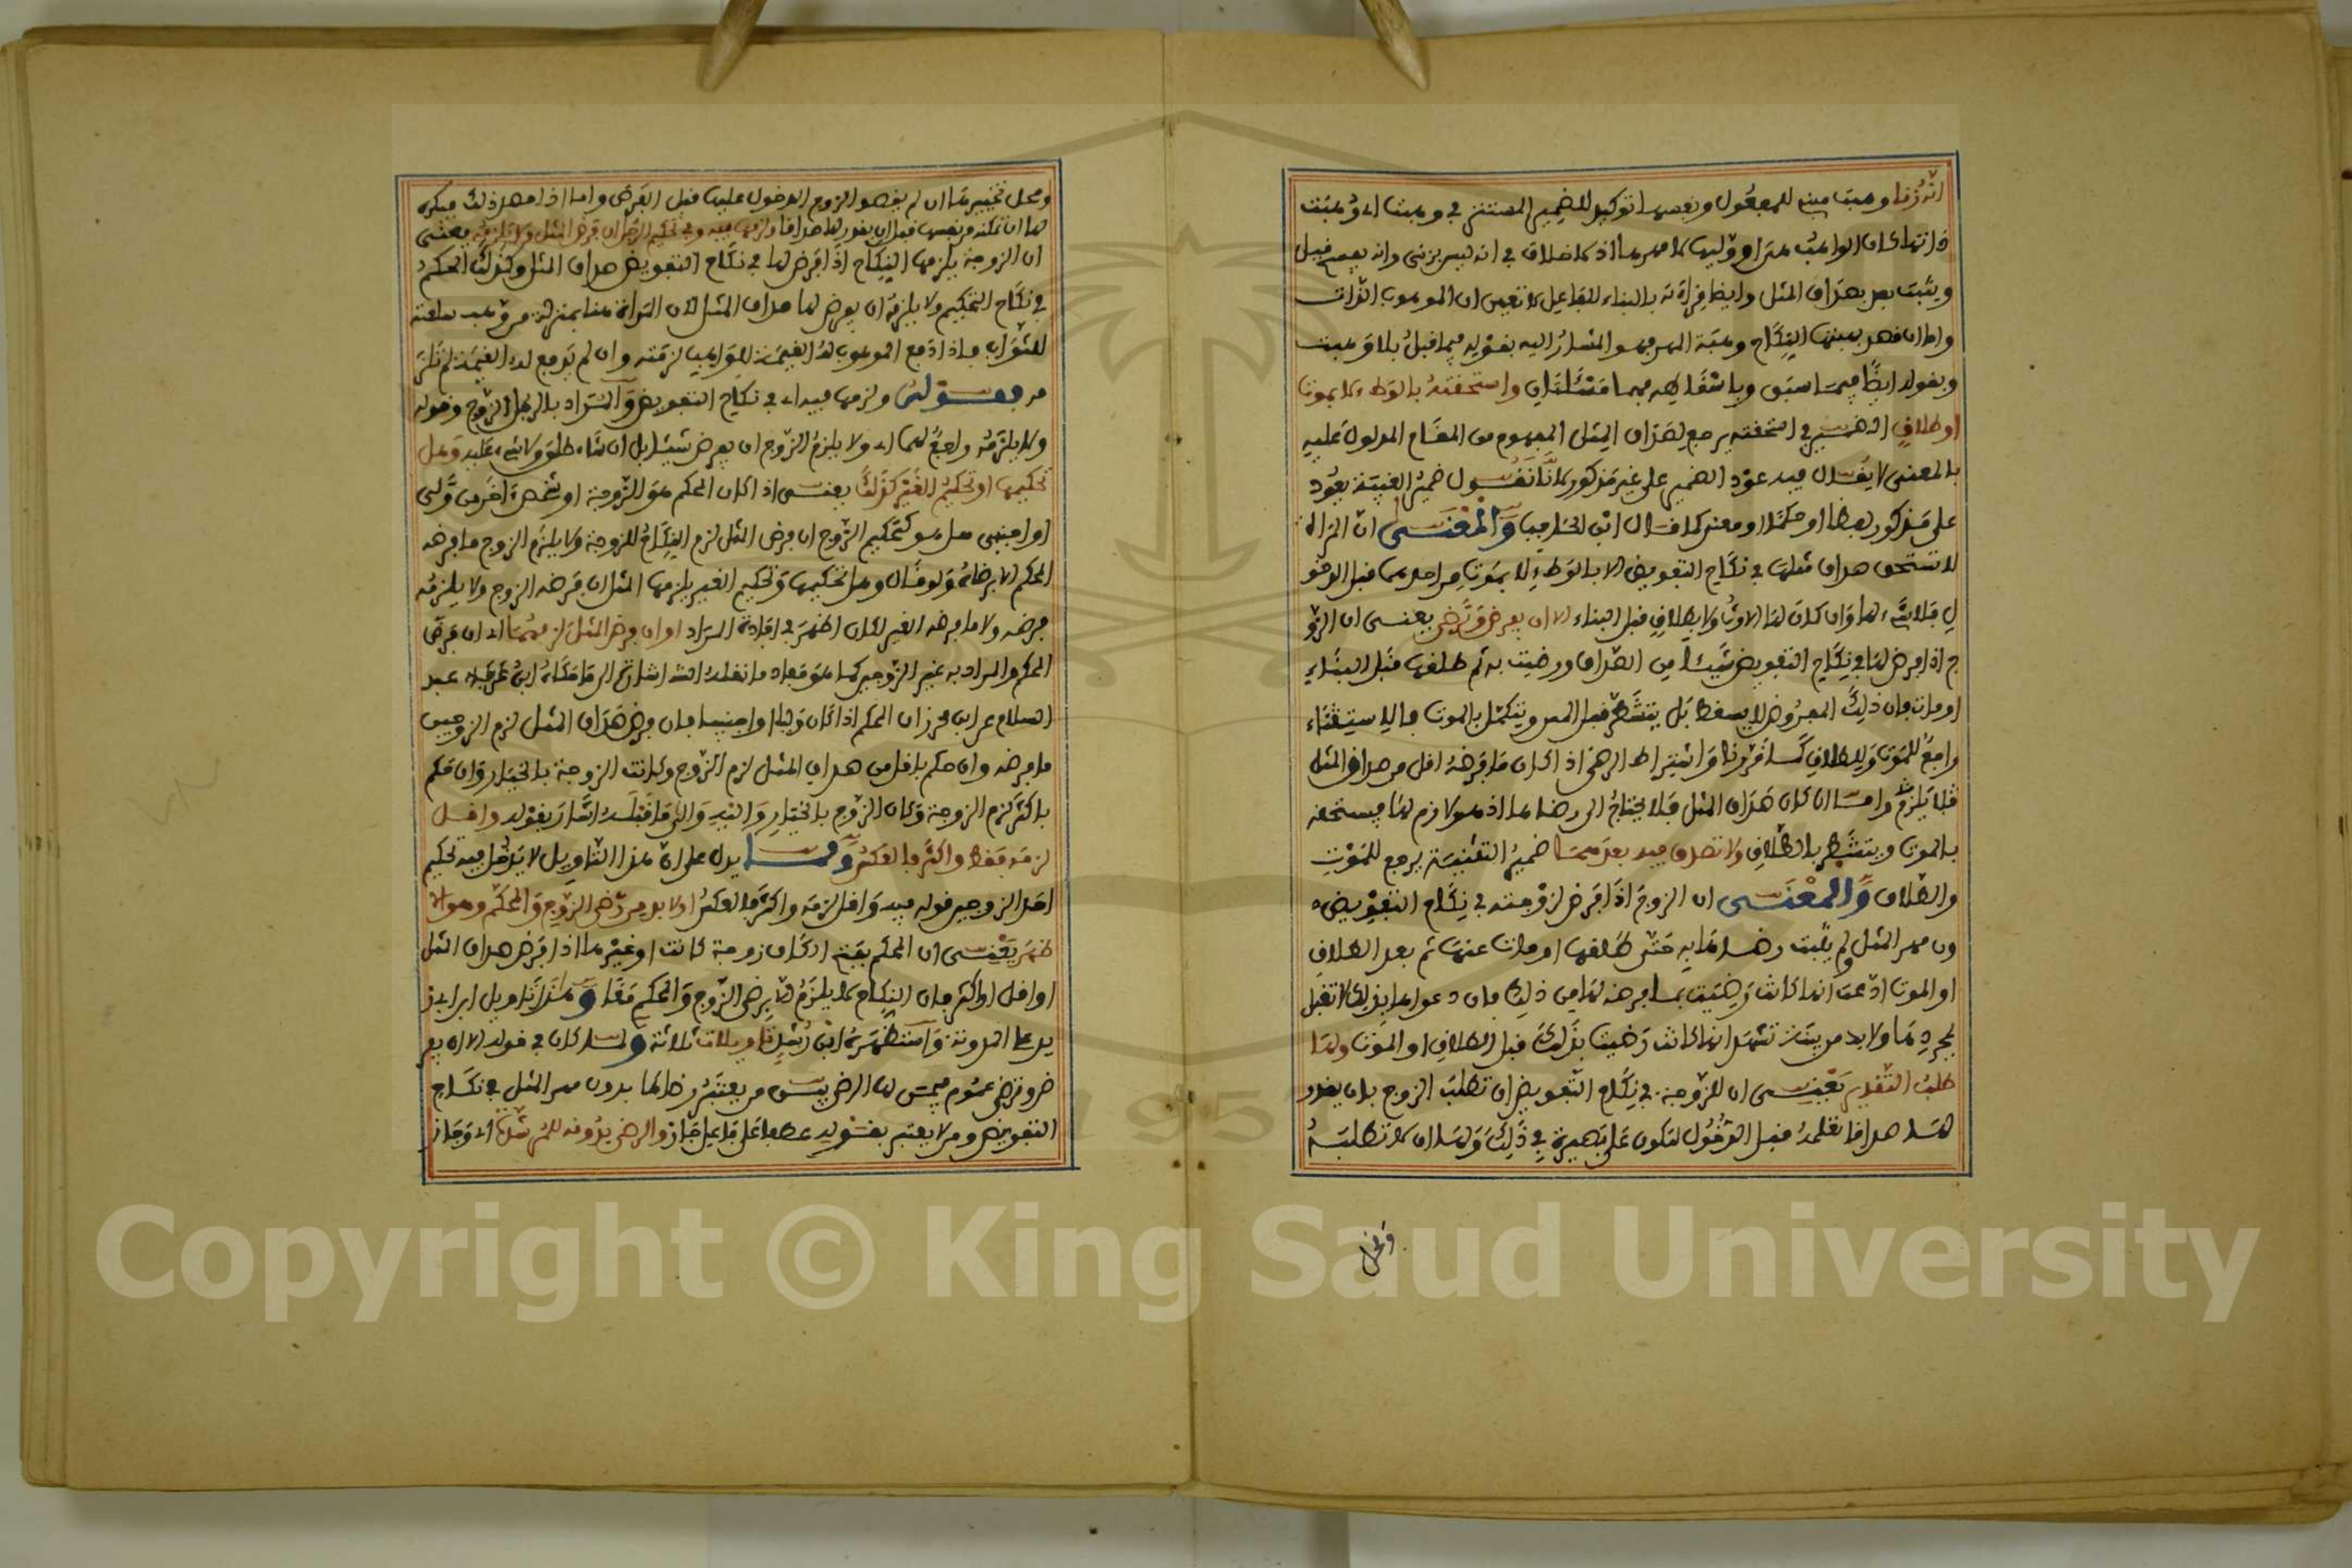 انه زنا وهبت مبني للمفعول وبنفسها توكيد للضمير المستتر في وهبت اي وهبت
ذاتها كان الواهب هي او وليها
ويثبت بعد بصداق المثل وايضا قراءته بالبناء للفاعل لا تعين ان الموهوب الذات
واما ان قصد بهبتها النكاح وهبة المهر فهو المشار اليه بقوله فيما قبل بلا وهبت
وبقوله ايضا فيما سبق وباسقاطه فهما مسئلتان واستحقته بالوطء لا بموت
او طلاق الضمير في استحقته يرجع لصداق المثل المفهوم من المقام المدلول عليه
بالمعنى لا يقال فيه عود الضمير على غير مذكور لانا نقول ضمير الغيبة يعود
على مذكور لفظا او حكما او معنى كما قال ابن الحاجب والمعنى ان المراة
لا تستحق صداق مثلها في نكاح التفويض الا بالوطء لا بموت من احدهما قبل الدخو
ل فلا شيء لها وان كان لها الارث ولا بطلاق قبل البناء الا ان يفرض وترضى يعني ان الزو
ج اذا فرض لها في نكاح التفويض شيئا من الصداق ورضيت به ثم طلقها قبل البناء
او مات فان ذلك المفروض لا يسقط بل يتشطر قبل المس ويتكمل بالموت فالاستثناء
راجع للموت وللطلاق كما قررنا واشتراط الرضى اذا كان ما فرضه اقل من صداق المثل
فلا يلزم واما ان كان صداق المثل فلا يحتاج الى رضاها اذ هو لازم لها فيستحقه
بالموت ويتشطر بالطلاق ولا تصدق فيه بعدهما ضمير التثنية يرجع للموت
والطلاق والمعنى ان الزوج اذا فرض لزوجته في نكاح التفويض د
ون مهر المثل ولم يثبت رضاها به حتى طلقها او مات عنها ثم بعد الطلاق
او الموت ادعت انها كانت رضيت بما فرضه لها من ذلك فان دعواها بذلك لا تقبل
بمجردها ولا بد من بينة تشهد انها كانت رضيت بذلك قبل الطلاق او الموت ولها
طلب التقدير يعني ان للزوجة في نكاح التفويض ان تطلب الزوج بان يقدر
لها صداقا تعلمه قبل الدخول لتكون على بصيرة في ذلك ولها ان لا تطلبه
ومحل
ومحل تخييرها ان لم يقصد الزوج الدخول عليها قبل الفرض واما اذا قصد ذلك فيكره
لها ان تمكنه من نفسها قبل ان يقدر لها صداقا ولزمها فيه وفي تحكيم الرجل ان فرض المثل ولا يلزمه يعني
ان الزوجة يلزمها النكاح اذا فرض لها في نكاح التفويض صداق المثل وكذلك الحكم
في نكاح التحكيم ولا يلزمه ان يفرض لها صداق المثل لان المراة هنا بمنزلة من وهب سلعته
للثواب فاذا دفع الموهوب له القيمة للواهب لزمته وان لم يدفع له القيمة لم تلز
مه فقوله ولزمها فيه اي في نكاح التفويض والمراد بالرجل الزوج وقوله
ولا يلزمه راجع لهما اي ولا يلزم الزوج ان يفرض شيئا بل ان شاء طلق ولا شيء عليه وهل
تحكيمها او تحكيم الغير كذلك يعني اذا كان المحكم هو الزوجة او شخص آخر من ولي
او اجنبي هل هو كتحكيم الزوج ان فرض المثل لزم النكاح للزوجة ولا يلزم الزوج ما فرضه
المحكم الا برضاه ولو قال وهل تحكيمها وتحكيم الغير يلزمها المثل ان فرضه الزوج ولا يلزمه
فرضه ولا ما فرضه الغير لكان اظهر في افادة المراد او ان فرض المثل لزمهما اي ان فرض
المحكم والمراد به غير الزوج
السلام عن ابن محرز ان المحكم اذا كان وليا او اجنبيا فان فرض صداق المثل لزم الزوجين
ما فرضه وان حكم باقل من صداق المثل لزم الزوج وكانت الزوجة بالخيار وان حكم
باكثر لزم الزوجة وكان الزوج بالخيار واليه والى ما قبله اشار بقوله واقل
لزمه فقط واكثر فالعكس ومما يدل على ان هذا التاويل لا يدخل فيه تحكيم
احد الزوجين قوله فيه واقل لزمه واكثر فالعكس او لا بد من رضى الزوج والمحكم وهو الا
ظهر يعني ان المحكم بفتح الكاف زوجة كانت او غيرها اذا فرض صداق المثل
او اقل او اكثر فان النكاح لا يلزم الا برضى الزوج والمحكم معا وهذا تاويل ابي ز
يد على المدونة واستظهره ابن رشد تاويلات ثلاثة ولما كان في قوله الا ان يفر
ض وترضى عموم فيمن لها الرضى بين من يعتبر رضاها بدون مهر المثل في نكاح
التفويض ومن لا يعتبر بقوله عطفا على فاعل جاز والرضى بدونه للمرشدة اي وجاز
Copyright © King Saud University
1957